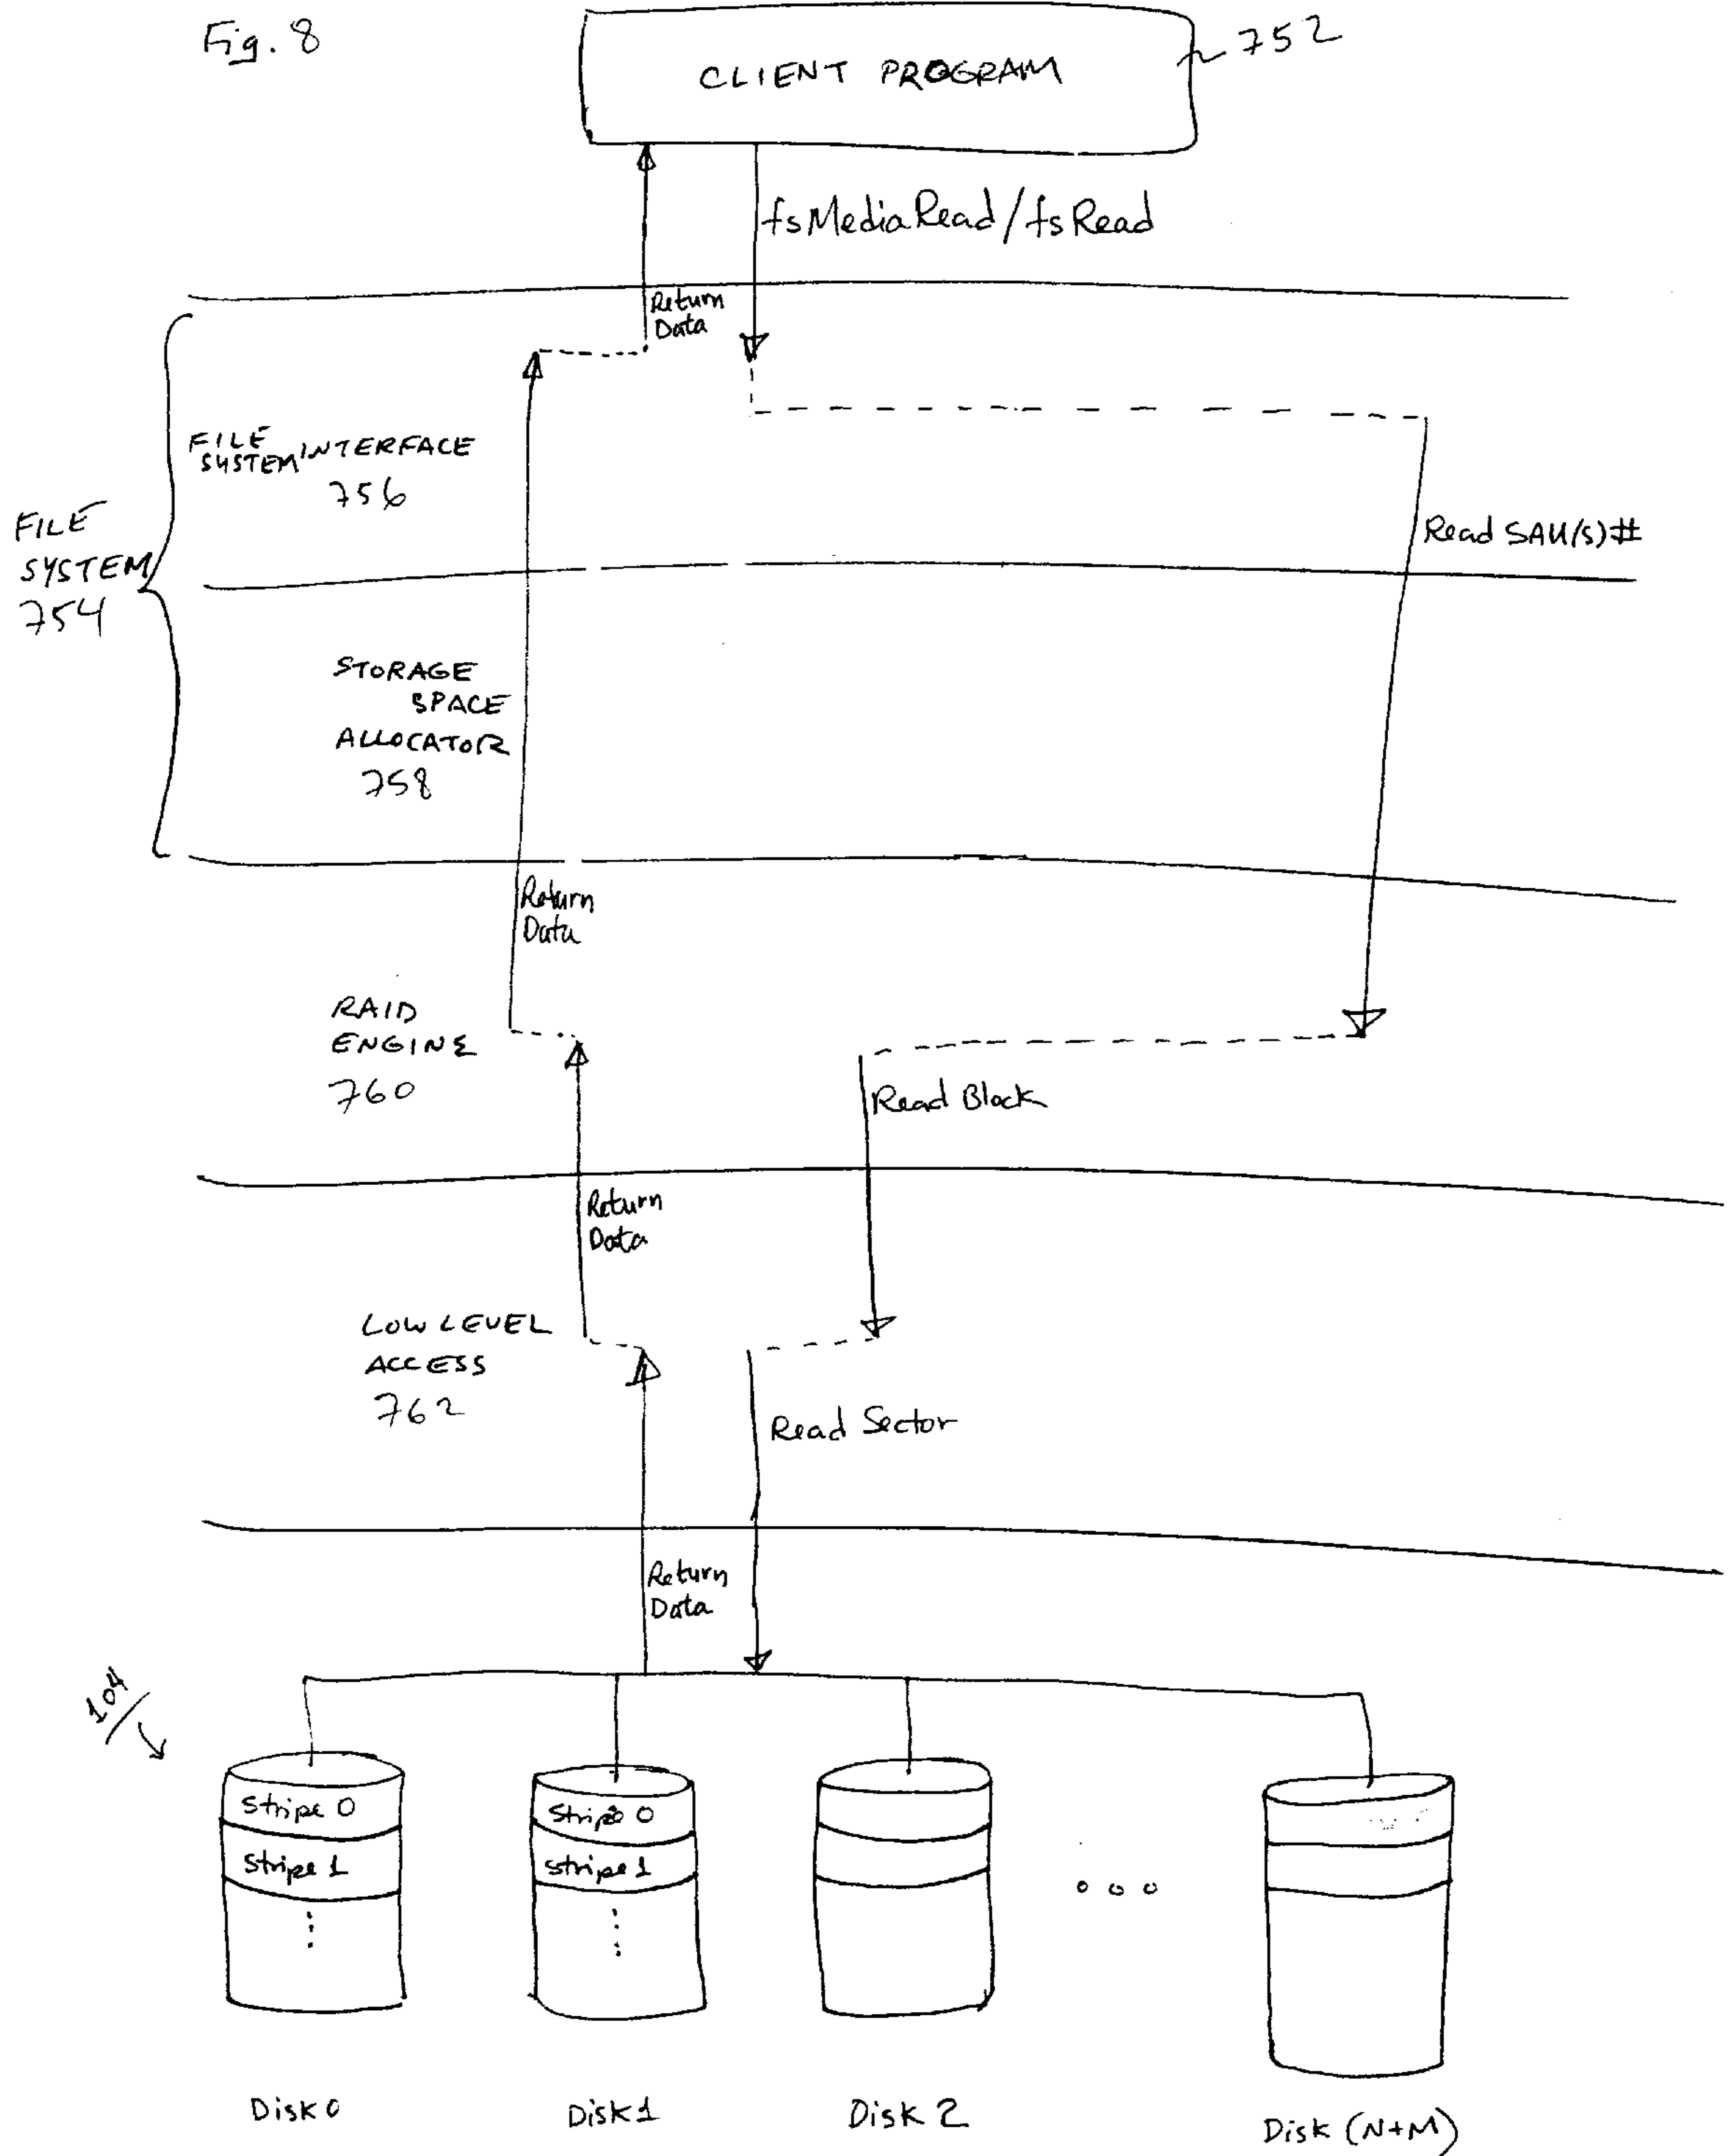 Fig. 8
CLIENT PROGRAM
752
fsMediaRead/fsRead
Return
Data
FILE
SYSTEM INTERFACE
756
FILE
SYSTEM
754
Read SAU(s)#
STORAGE
SPACE
ALLOCATOR
758
Return
Data
RAID
ENGINE
760
Read Block
Return
Data
LOW LEVEL
ACCESS
762
Read Sector
Return
Data
104
Stripe 0
Stripe 0
Stripe 1
Stripe 1
Disk 0
Disk 1
Disk 2
Disk (N+M)